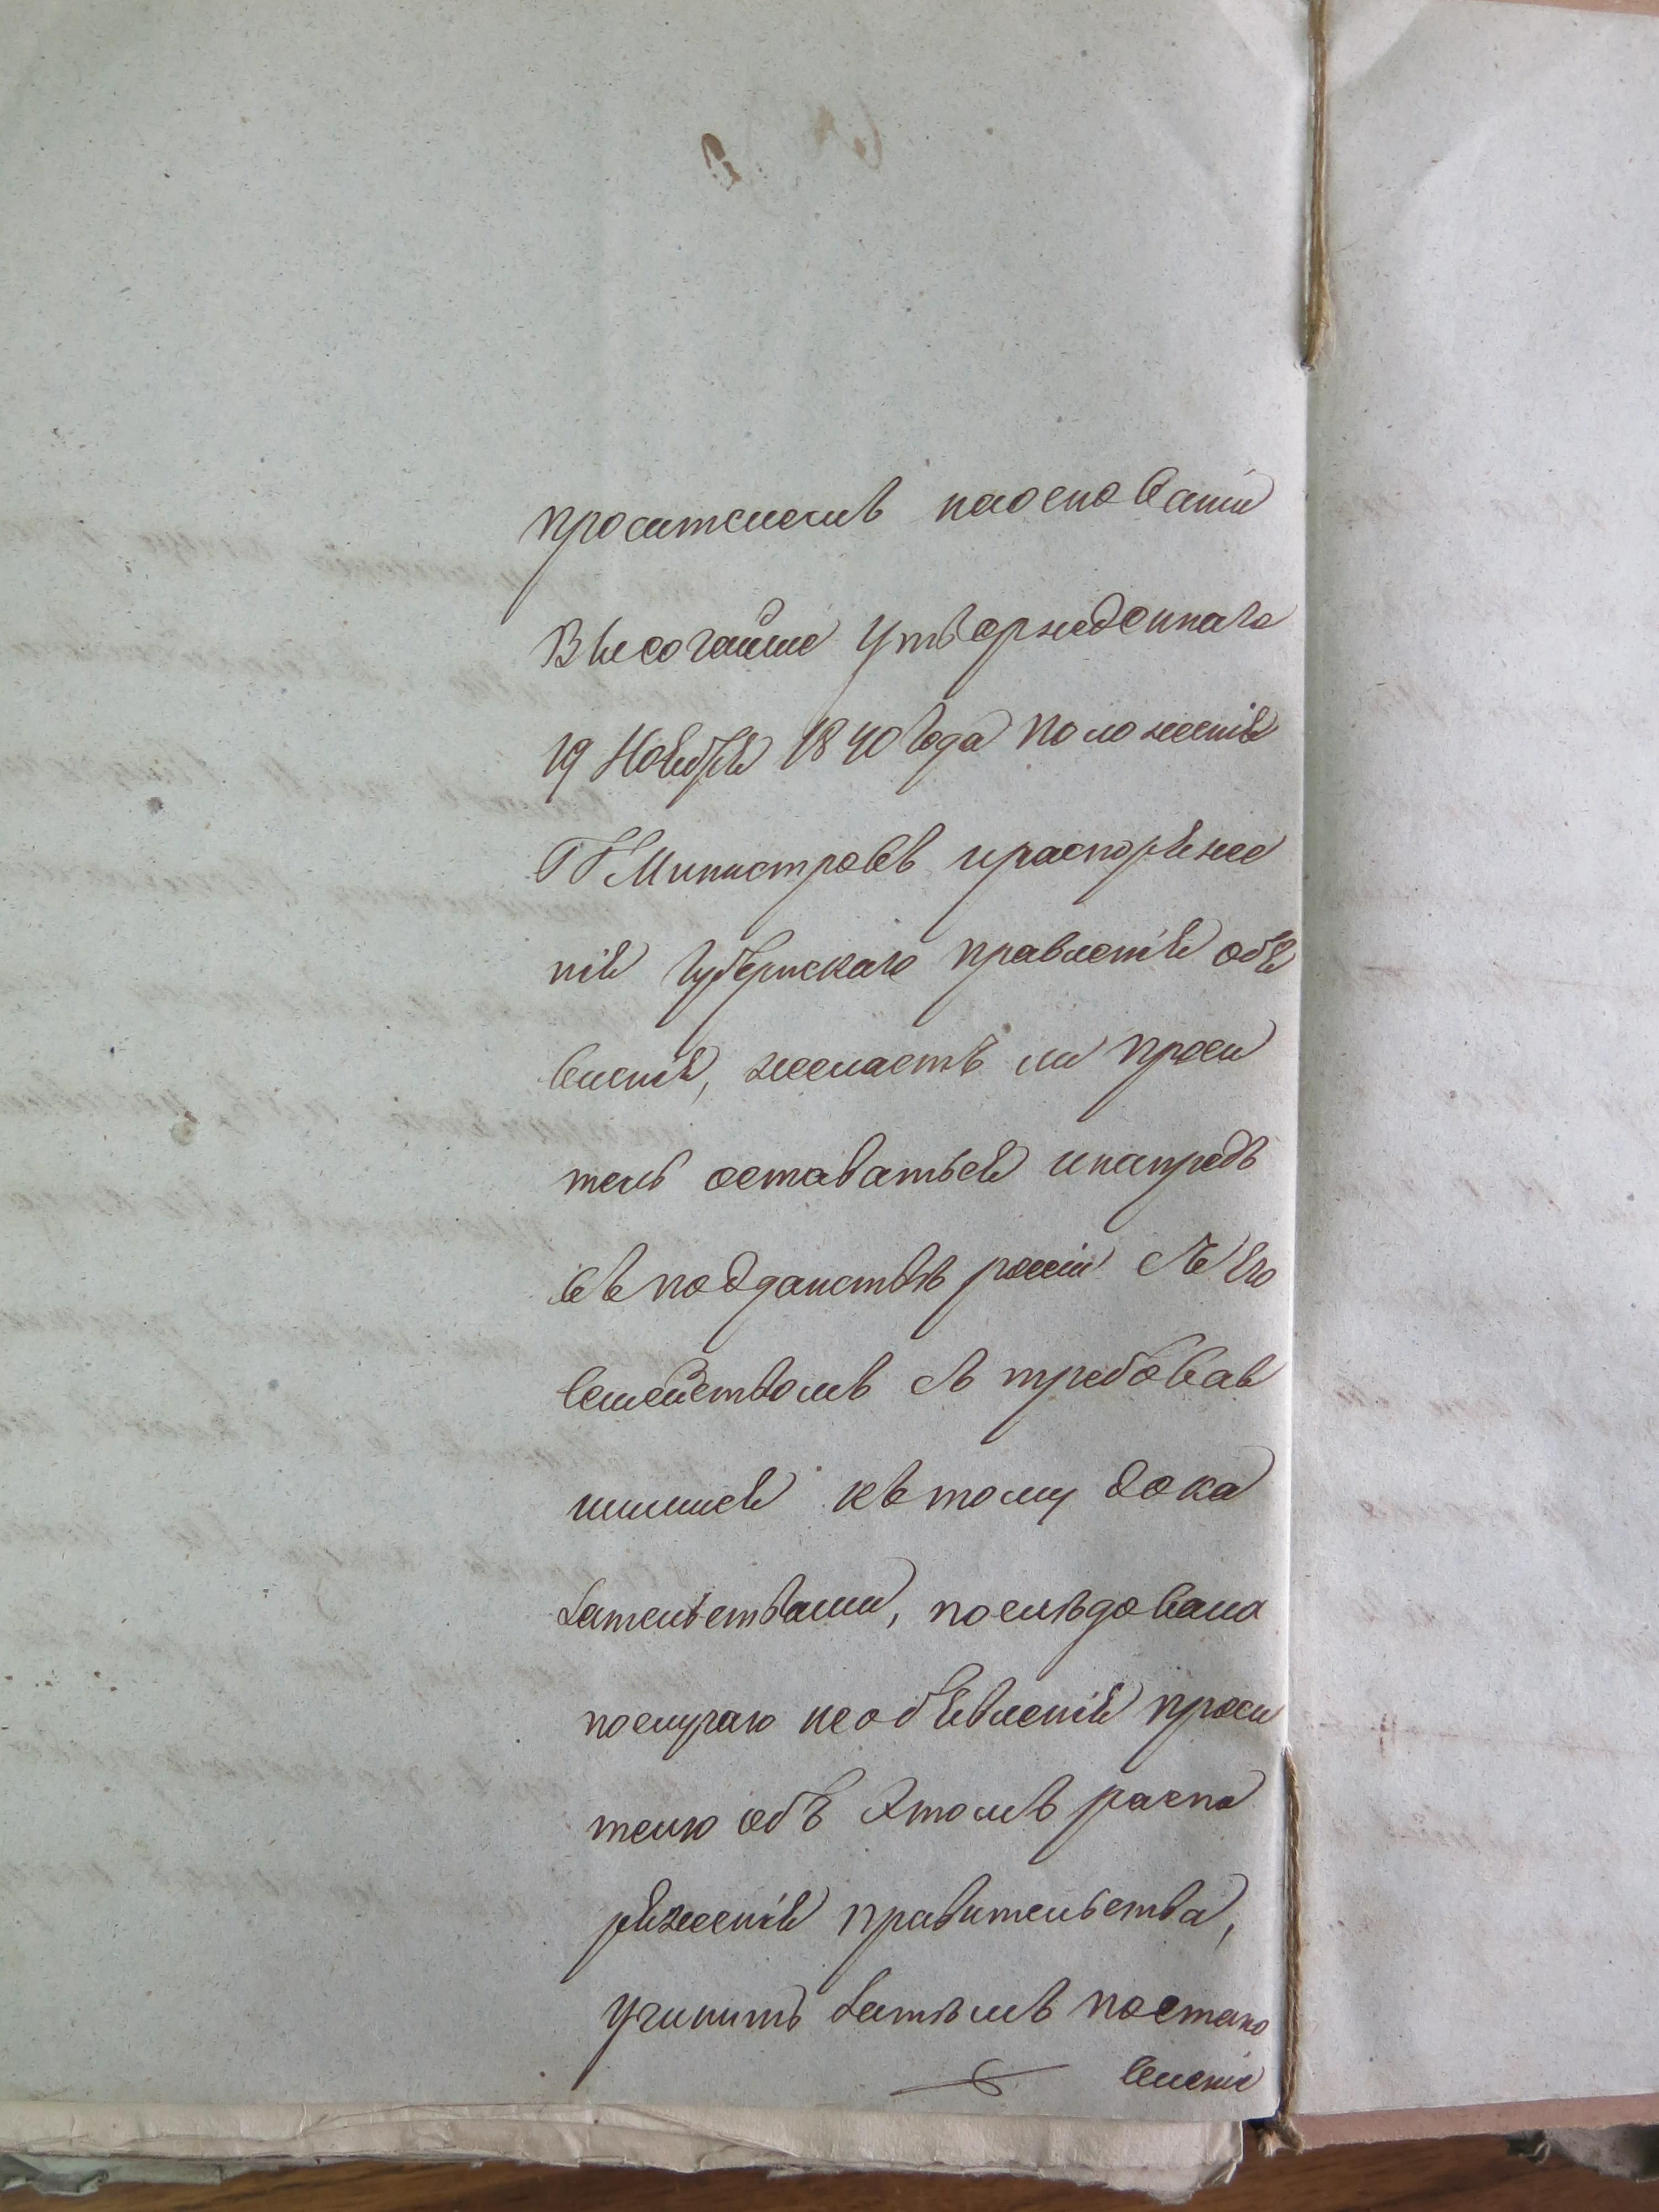 просителемъ наоснованіи
Высочайше утвержденнаго
19 Ноября 1840 года положенія
ГГ Министровъ ираспоряже
нія Губернскаго правленія объя
вленія, желаетъ ли проси
тель оставаться инапредь
въ подданствѣ россіи съ Его
Семействомъ съ требовав
шимися къ тому дока
зательствами, последовала
послучаю необъявленія проси
телю объ Этомъ распо
ряженія правительства,
учинить затѣмъ постано
вленіе